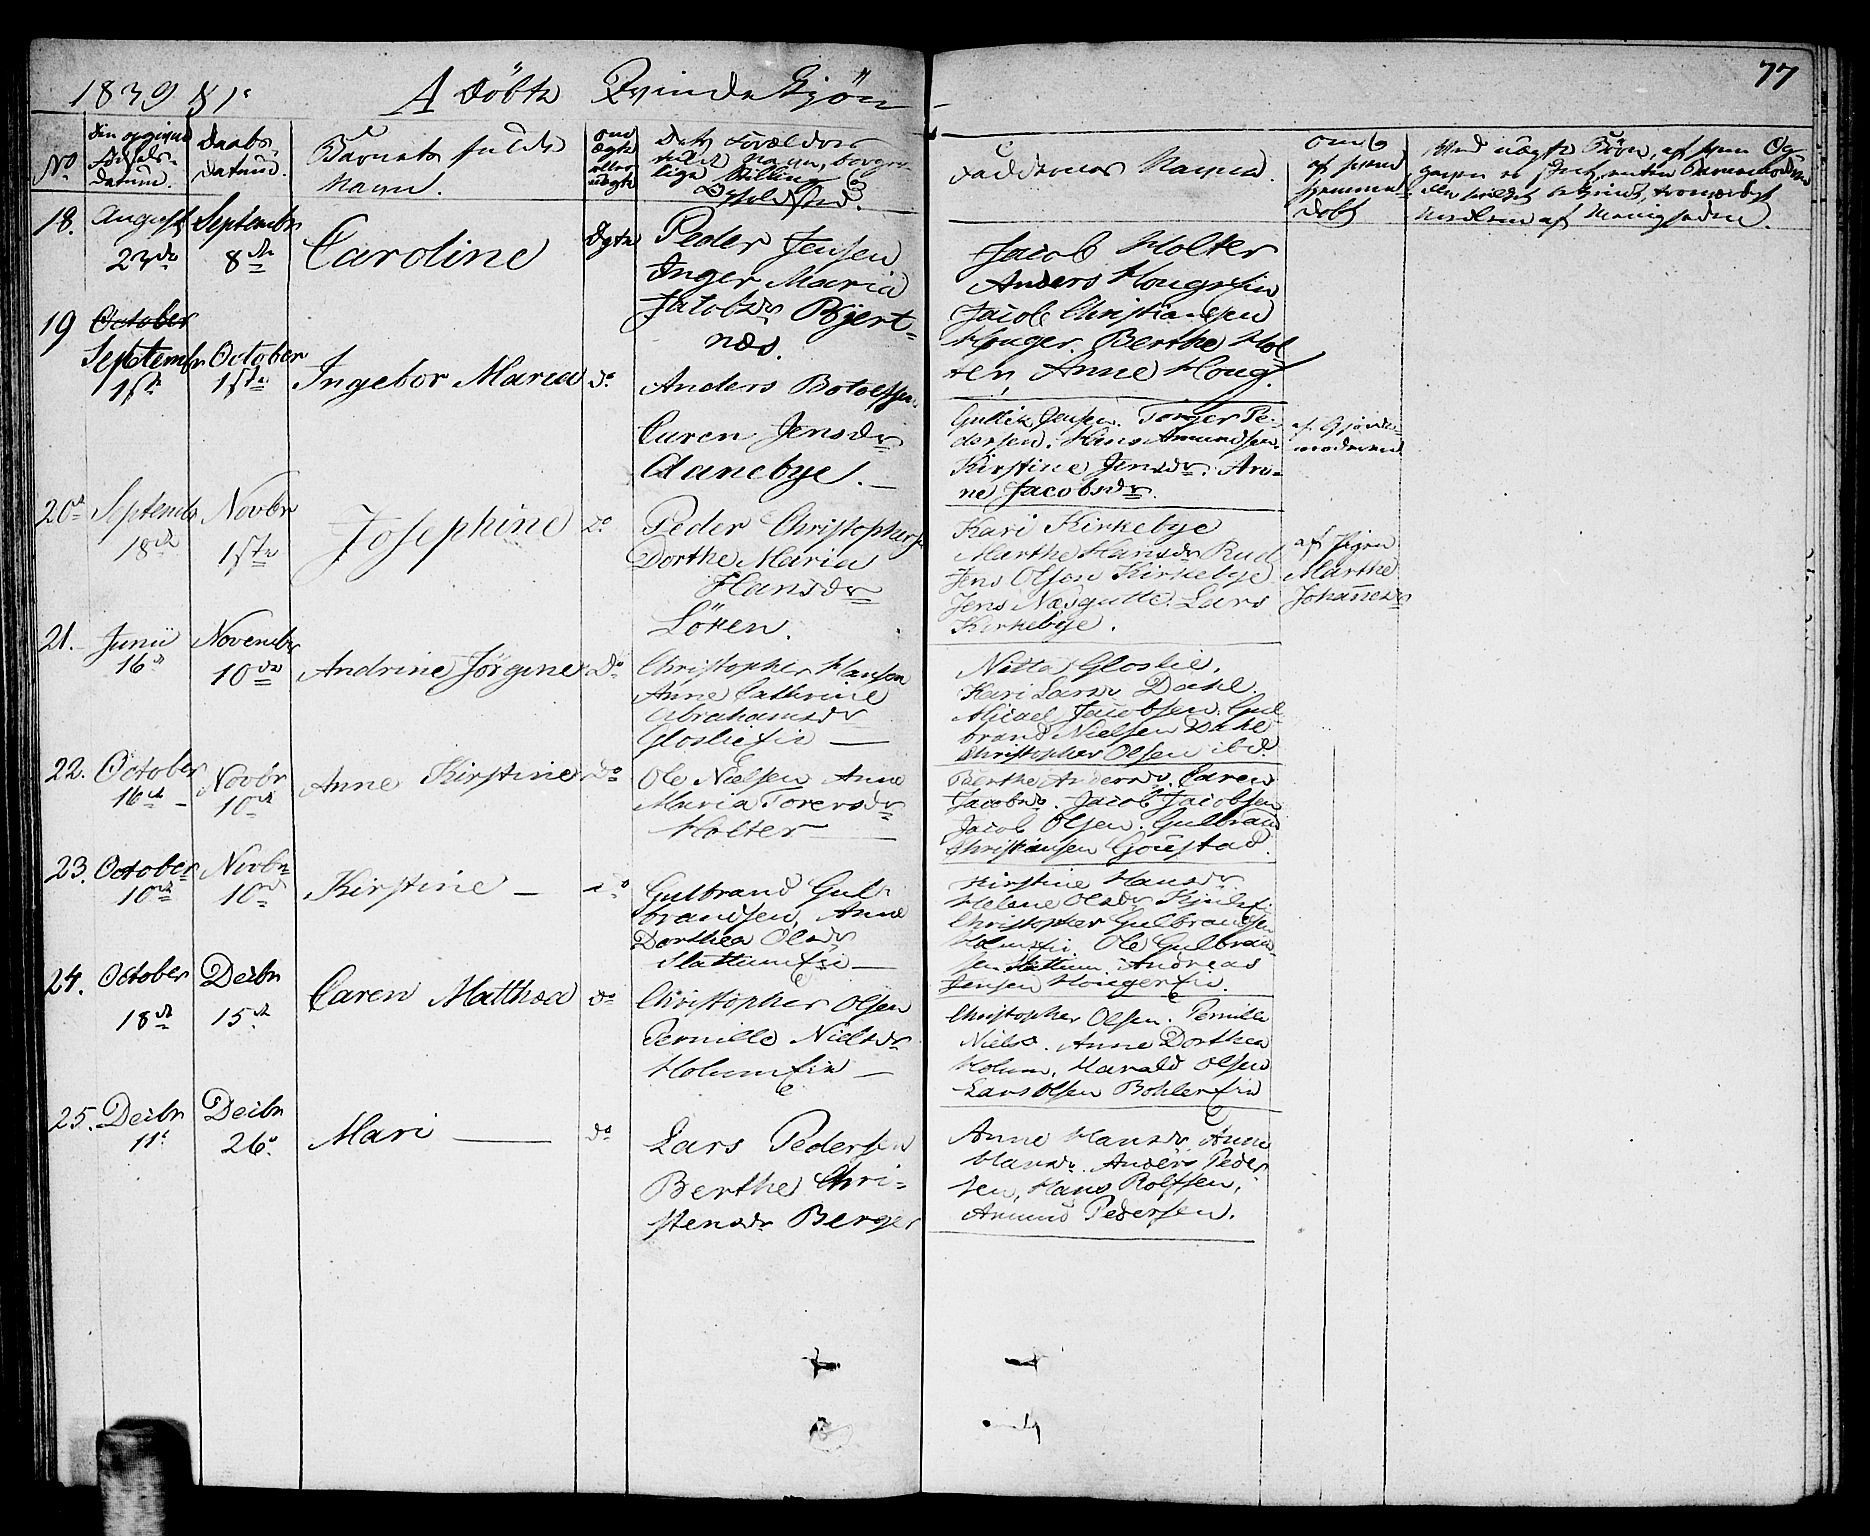 1839 § 1. A Döbte Qvindekjön
77
No
den opgivne Födsels-Datum.
Daabs-Datum.
Barnets fulde Navn.
om ægte eller uægte
Dets Forældres fulde Navn, borgerlige Stilling & Opholdsted.
Faddernes Navne.
om & af hvem hjemmedöbt
18. August 23de
Septembr 8de
Caroline
ægte
Peder Jensen
Inger Maria
Jacobsdr Bjert-
næs.
Jacob Holter
Anders Hougseie
Jacob Christiansen
Houger. Berthe Hol-
ter, Anne Houg.
19 October
Septembr 1ste
October 1ste
Ingebor Maria
do
Anders Botolfsen
Caren Jensdr
Aanebye.
Gullik Jensen. Torger Pe-
dersen. Hans Amundsen.
Kirstine Jensdr. An-
ne Jacobsdr.
af Gjorde-
moderen
20de Septembr 18de
Novbr 1ste
Josephine
do
Peder Christophers
Dorthe Maria
Hansdr
Löken.
Kari Kirkebye
Marthe Hansdr Rud
Jens Olsen Kirkebye
Jens Næsgutte. Lars
Kirkebye.
af Pigen
Marthe
Johannesdr
21. Junii 16de
Novembr 10de
Andrine Jörgine
do
Christopher Hansen
Anne Cathrine
Abrahamsdr
Gloslieeie
Nitta Gloslie.
Kari Larsdr Dahl.
Micael Jacobsen. Gul-
brand Nielsen Dahl
Christopher Olsen ibd.
22. October 16de
Novbr 10de
Anne Kirstine
do
Ole Nielsen Anne
Maria Torersdr
Holter
Berthe Andersdr. Caren
Jacobsdr. Jacob Jacobsen
Jacob Olsen. Gulbrand
Christiansen Goustad.
23. October 10de
Novbr 10de
Kirstine
do
Gulbrand Gul-
brandsen, Anne
Dorthea Olsdr
Slattumeie
Kirstine Hansdr
Helene Olsdr
Christopher Gulbrandsen
Holumeie Ole Gulbrand-
sen Slattum. Andreas
Jensen Hougereie.
24. October 18de
Decbr 15de
Caren Matthea
do
Christopher Olsen
Pernille Nielsdr
Holumeie
Christopher Olsen. Pernille
Nielsd. Anne Dorthea
Holum, Harald Olsen
Lars Olsen Bohlereie
25. Decbr 11te
Decbr 26.
Mari
do
Lars Pedersen
Berthe Chri-
stensdr Berger
Anne Hansdr Anne
Hansdr. Anders Peder-
sen, Hans Rolfsen,
Amund Pedersen.